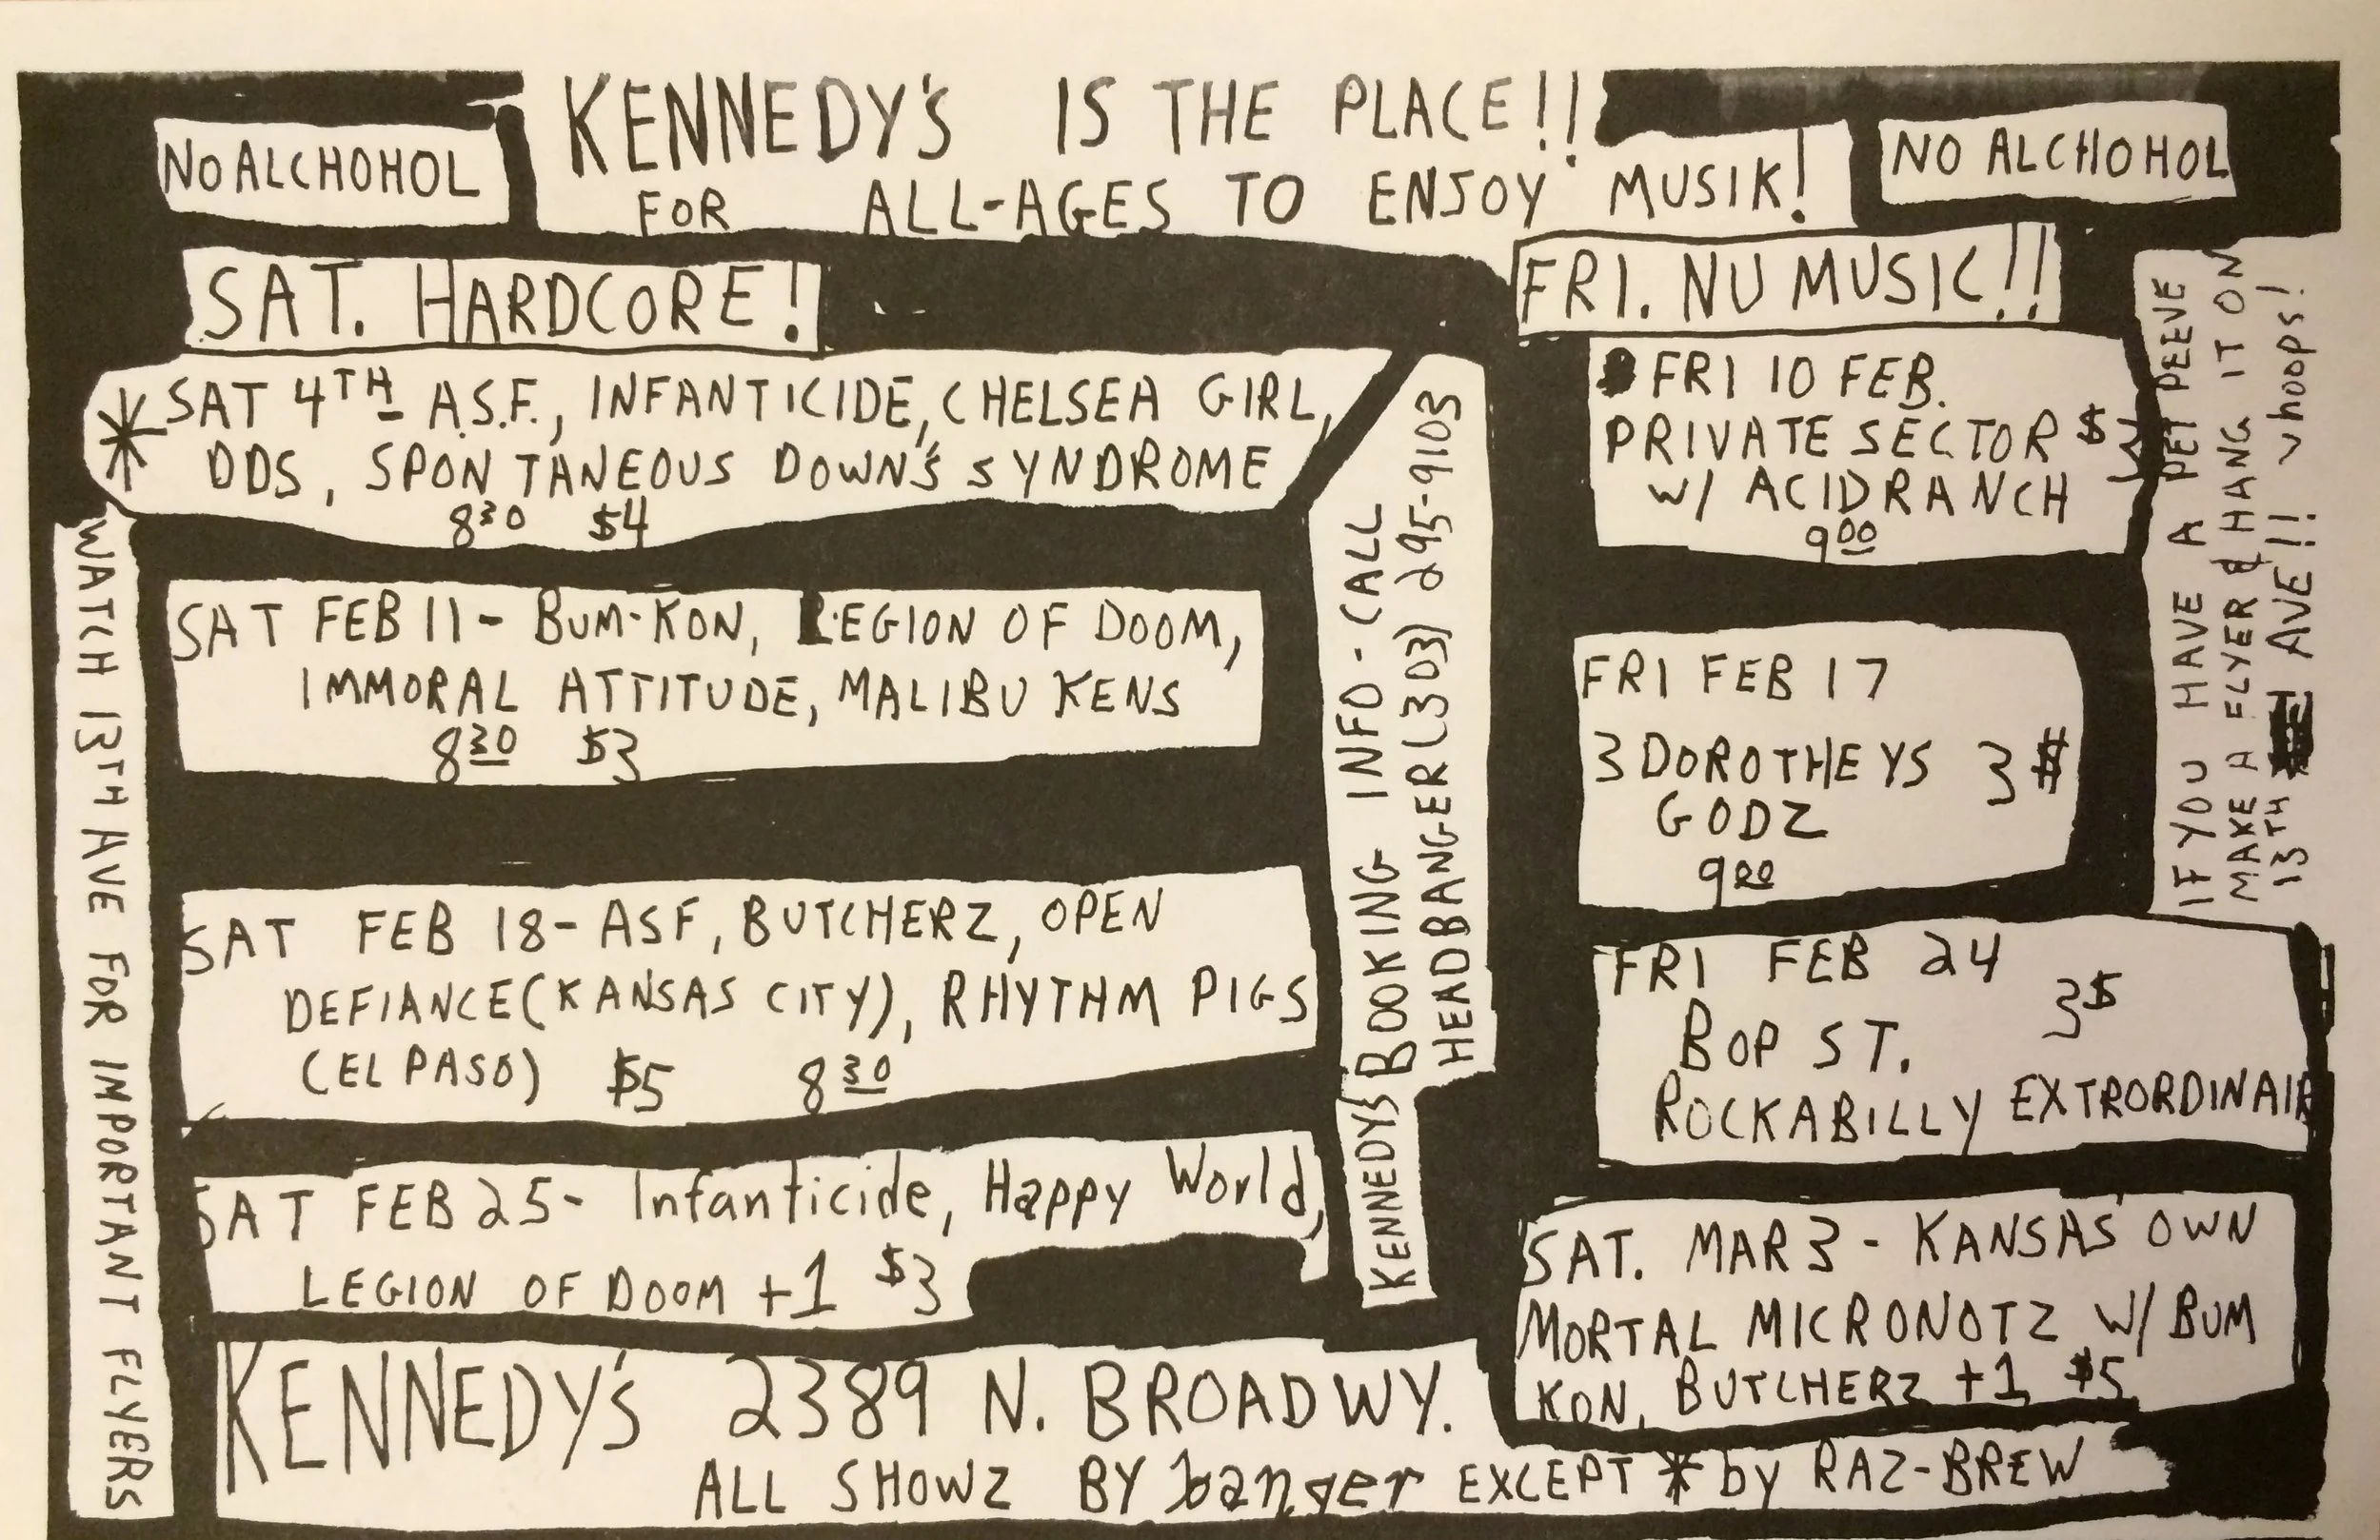 NO ALCHOHOL
KENNEDY'S IS THE PLACE!!
FOR ALL-AGES TO ENJOY MUSIK!
NO ALCHOHOL
SAT. HARDCORE!
* SAT 4TH A.S.F., INFANTICIDE, CHELSEA GIRL,
DDS, SPONTANEOUS DOWN'S SYNDROME
8:30 $4
SAT FEB 11- BUM-KON, LEGION OF DOOM,
IMMORAL ATTITUDE, MALIBU KENS
8:30 $3
SAT FEB 18- ASF, BUTCHERZ, OPEN
DEFIANCE (KANSAS CITY), RHYTHM PIGS
(EL PASO) $5 8:30
SAT FEB 25- Infanticide, Happy World,
LEGION OF DOOM +1 $3
WATCH 13TH AVE FOR IMPORTANT FLYERS
KENNEDYS BOOKING INFO-CALL
HEADBANGER (303) 295-9103
FRI. NU MUSIC!!
FRI 10 FEB.
PRIVATE SECTOR $3
W/ ACIDRANCH
9:00
FRI FEB 17
3 DOROTHEYS 3$
GODZ
9:00
FRI FEB 24
3$
BOP ST.
ROCKABILLY EXTRORDINAIR
SAT. MAR 3 - KANSAS' OWN
MORTAL MICRONOTZ W/ BUM
KON, BUTCHERZ +1 $5
IF YOU HAVE A PET PEEVE
MAKE A FLYER & HANG IT ON
13TH AVE!! whoops!
KENNEDY'S 2389 N. BROADWY.
ALL SHOWZ BY banger EXCEPT * by RAZ-BREW